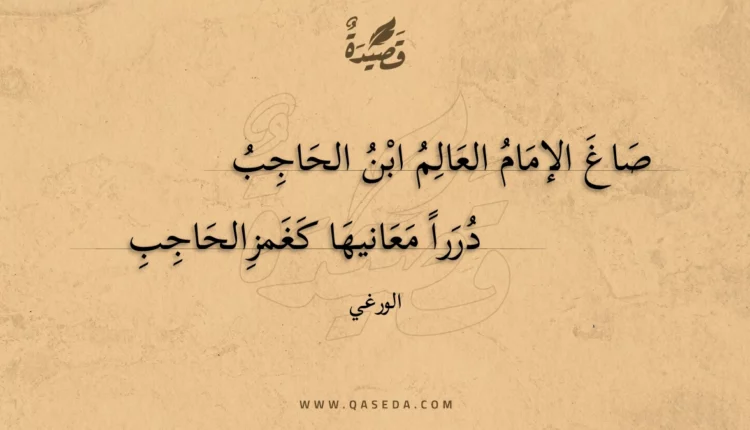 قَصِيْدَةٌ
صَاغَ الإمَامُ العَالِمُ ابْنُ الحَاجِبُ
دُرَراً مَعَانيهَا كَغَمزِالحَاجِبِ
الورغي
WWW.QASEDA.COM